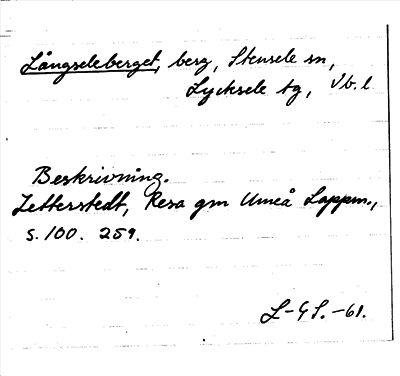 Långseleberget, berg, Stensele sn,
Lycksele tg, Vb. l
Beskrivning.
Zetterstedt, Resa gm Umeå Lappm.,
s. 100. 259.
L-GS.-61.